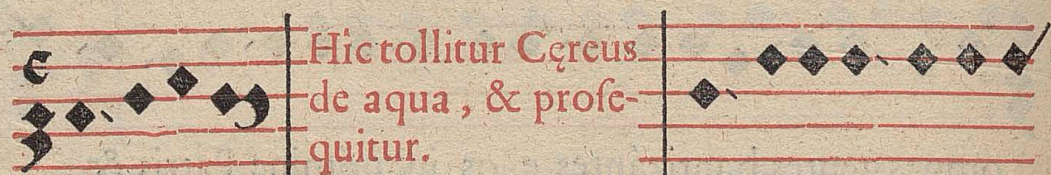 Hic tollitur Cęreus
de aqua, & proſe-
quitur.